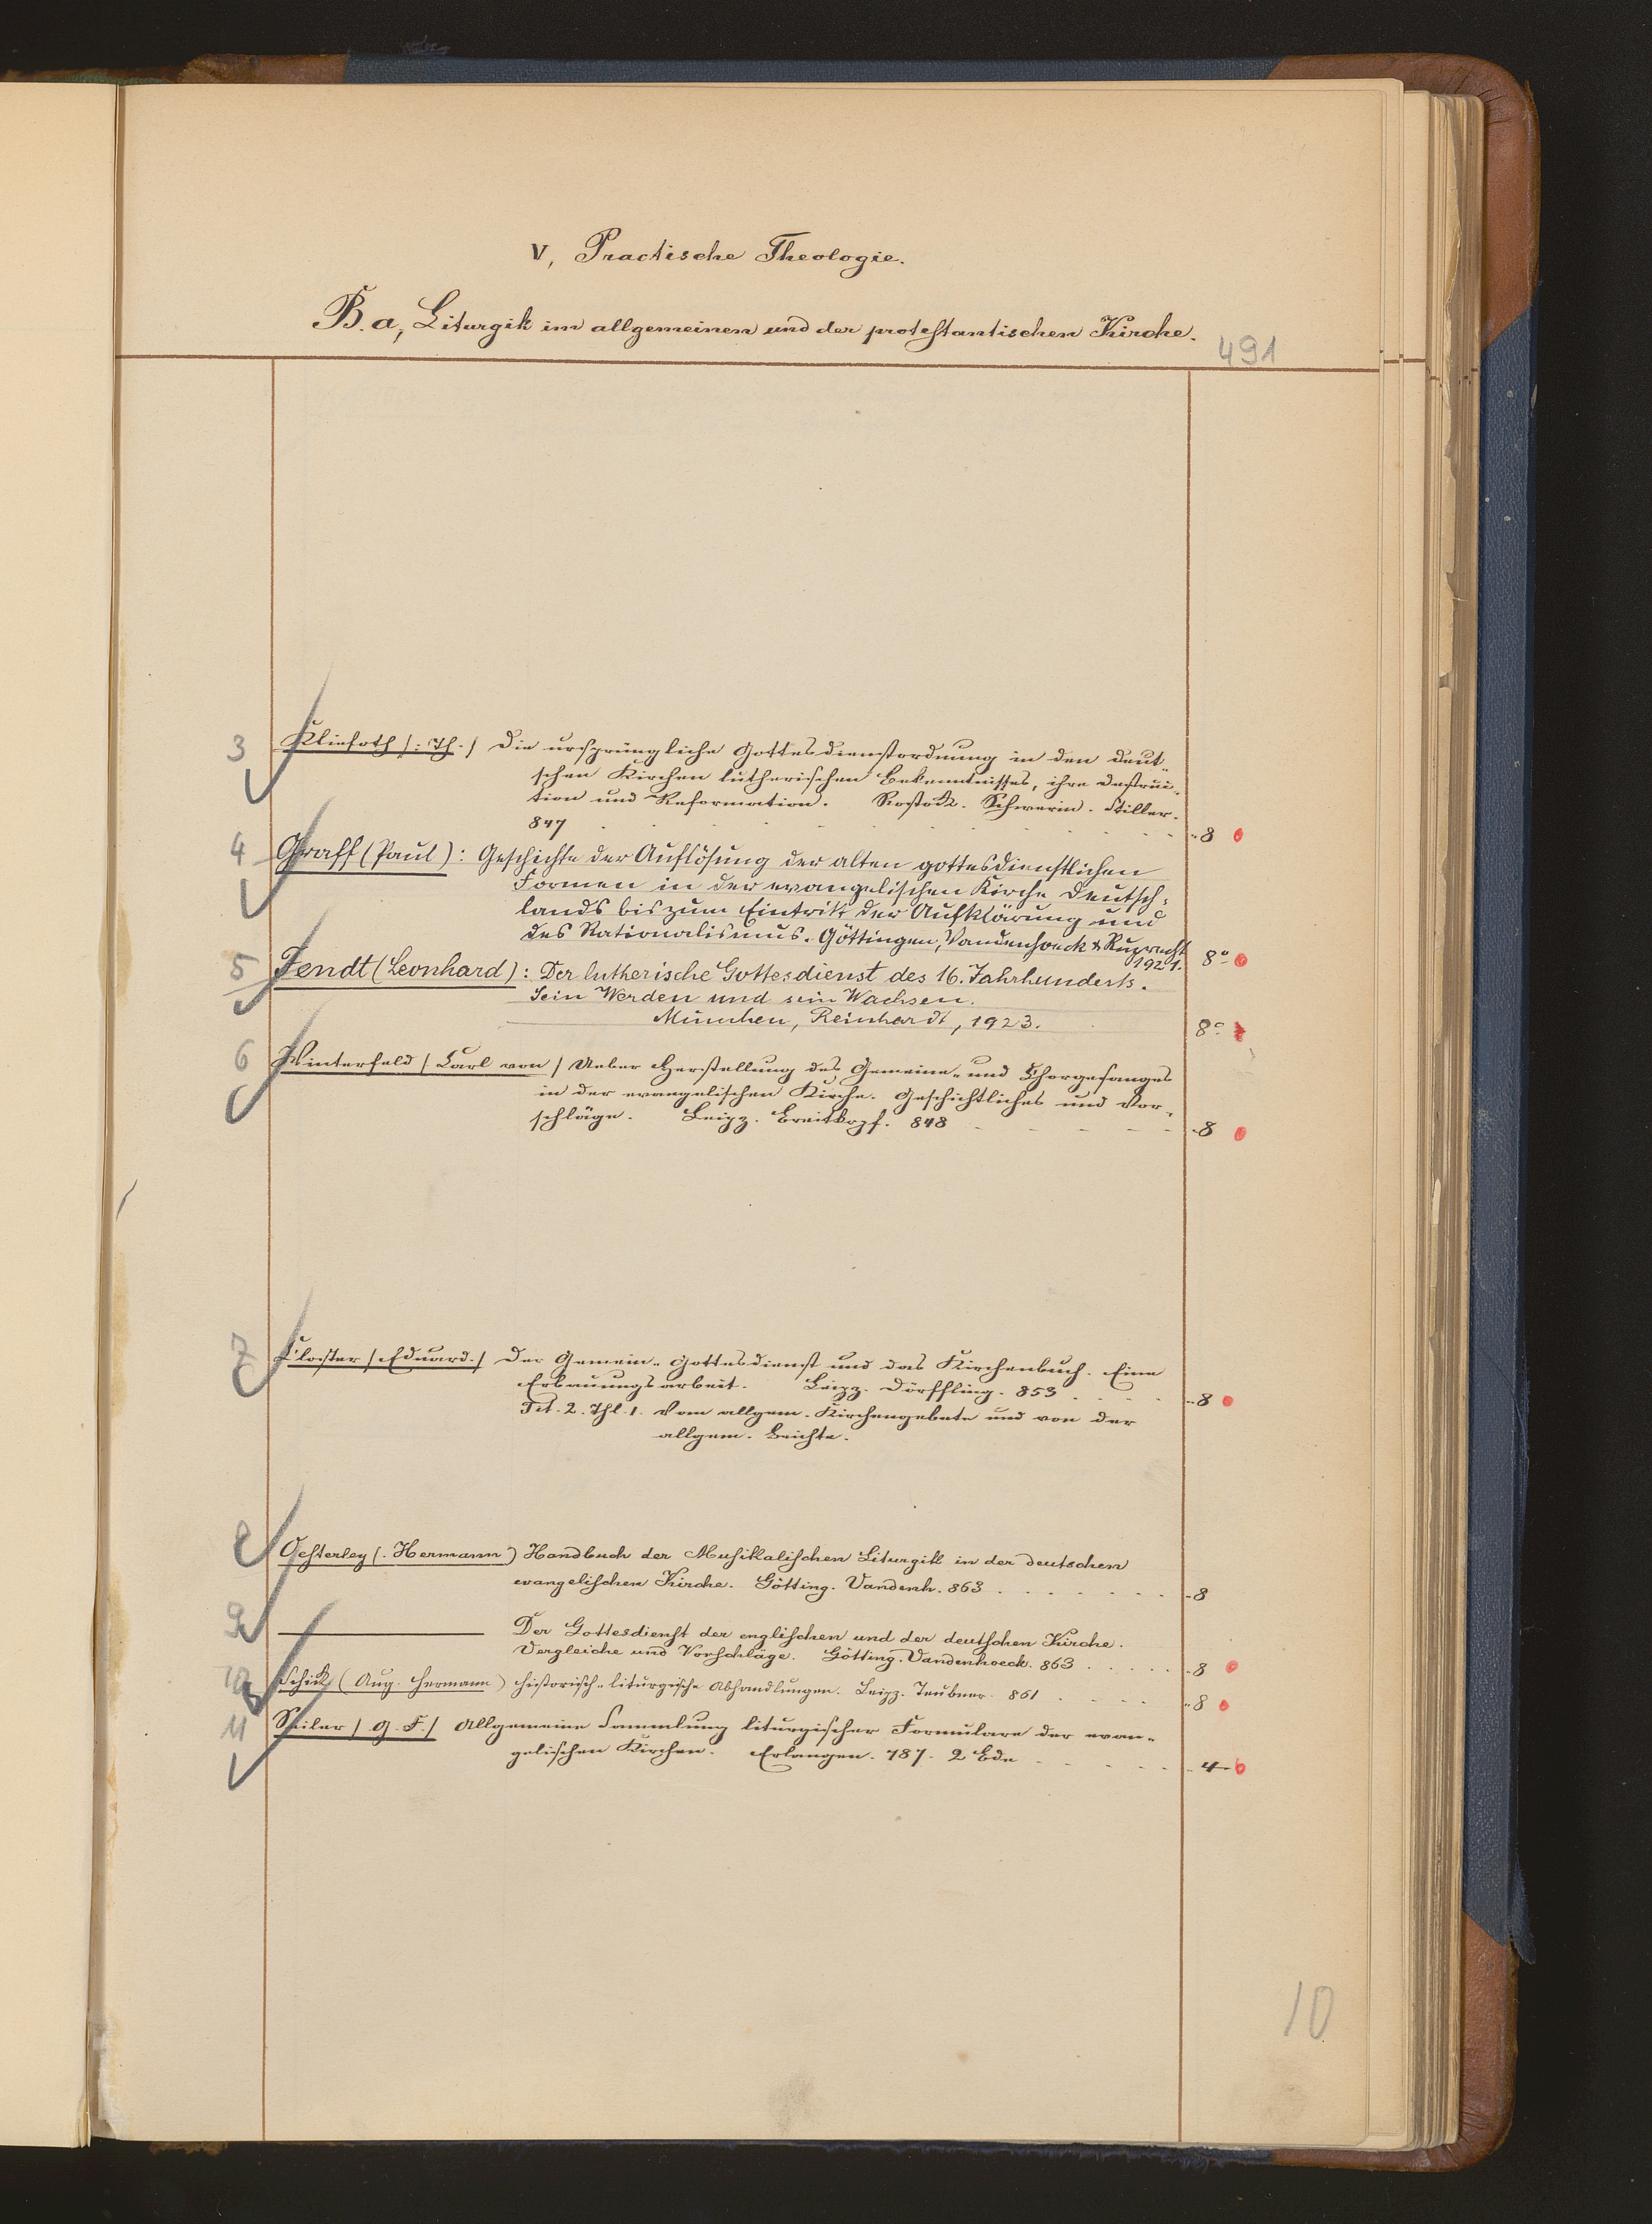 V, Practische Theologie.
B. a, Liturgik im allgemeinen und der protestantischen Kirche.
491
3 Kliefoth /: Th. / Die ursprüngliche Gottesdienstordnung in den deut-
schen Kirchen lutherischen Bekenntnisses, ihre Destruc-
tion und Reformation. Rostock. Schwerin. Stiller.
847 - 8
4 Graff (Paul): Geschichte der Auflösung der alten gottesdienstlichen
Formen in der evangelischen Kirche Deutsch-
lands bis zum Eintritt der Aufklärung und
des Rationalismus. Göttingen, Vandenhoeck & Ruprecht
1921. 8°
5 Fendt (Leonhard): Der lutherische Gottesdienst des 16. Jahrhunderts.
Sein Werden und sein Wachsen.
München, Reinhardt, 1923. 8°
6 Winterfeld / Carl von / Ueber Herstellung des Gemeine- und Chorgesanges
in der evangelischen Kirche. Geschichtliches und Vor-
schläge. Leipz. Breitkopf. 848 - 8
7 Closter / Eduard. / Der Gemein-Gottesdienst und das Kirchenbuch. Eine
Erbauungsarbeit. Leipz. Dörffling. 853 - 8
Tit. 2. Thl. 1. Vom allgem. Kirchengebete und von der
allgem. Beichte.
8 Oesterley (. Hermann) Handbuch der Musikalischen Liturgik in der deutschen
evangelischen Kirche. Götting. Vandenh. 863 - 8
9 ——— Der Gottesdienst der englischen und der deutschen Kirche.
Vergleiche und Vorschläge. Götting. Vandenhoeck. 863 - 8
10 Schick (Aug. Hermann) historisch-liturgische Abhandlungen. Leipz. Teubner. 861 - 8
11 Seiler / G. F. / Allgemeine Sammlung liturgischer Formulare der evan-
gelischen Kirchen. Erlangen. 787. 2 Bde - 4
10